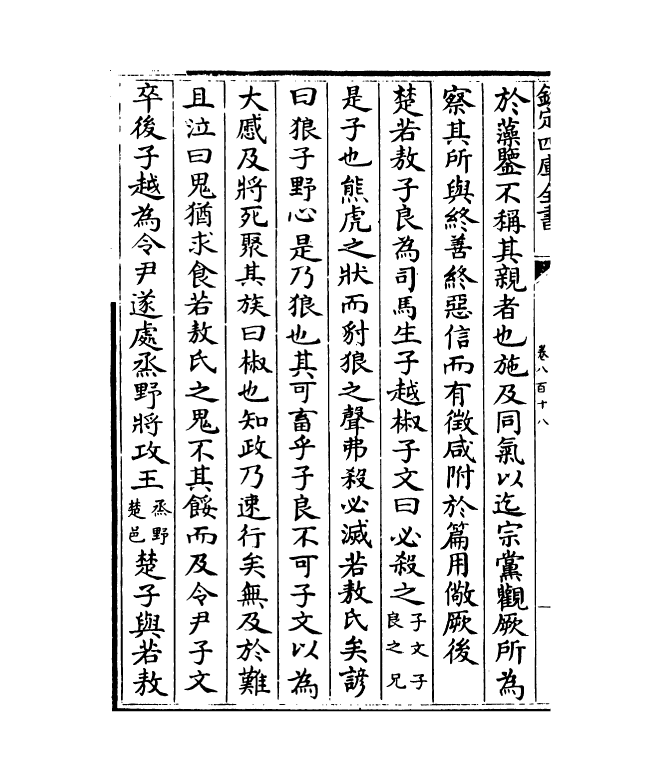 欽定四庫全書
卷八百十八
於藻鑒不稱其親者也施及同氣以迄宗黨觀厥所為
察其所與終善終惡信而有徵咸附於篇用儆厥後
楚若敖子良為司馬生子越椒子文曰必殺之子文子良之兄
是子也熊虎之狀而豺狼之聲弗殺必滅若敖氏矣諺
曰狼子野心是乃狼也其可畜乎子良不可子文以為
大慼及將死聚其族曰椒也知政乃速行矣無及於難
且泣曰鬼猶求食若敖氏之鬼不其餒而及令尹子文
卒後子越為令尹遂處烝野將攻王烝野楚邑楚子與若敖